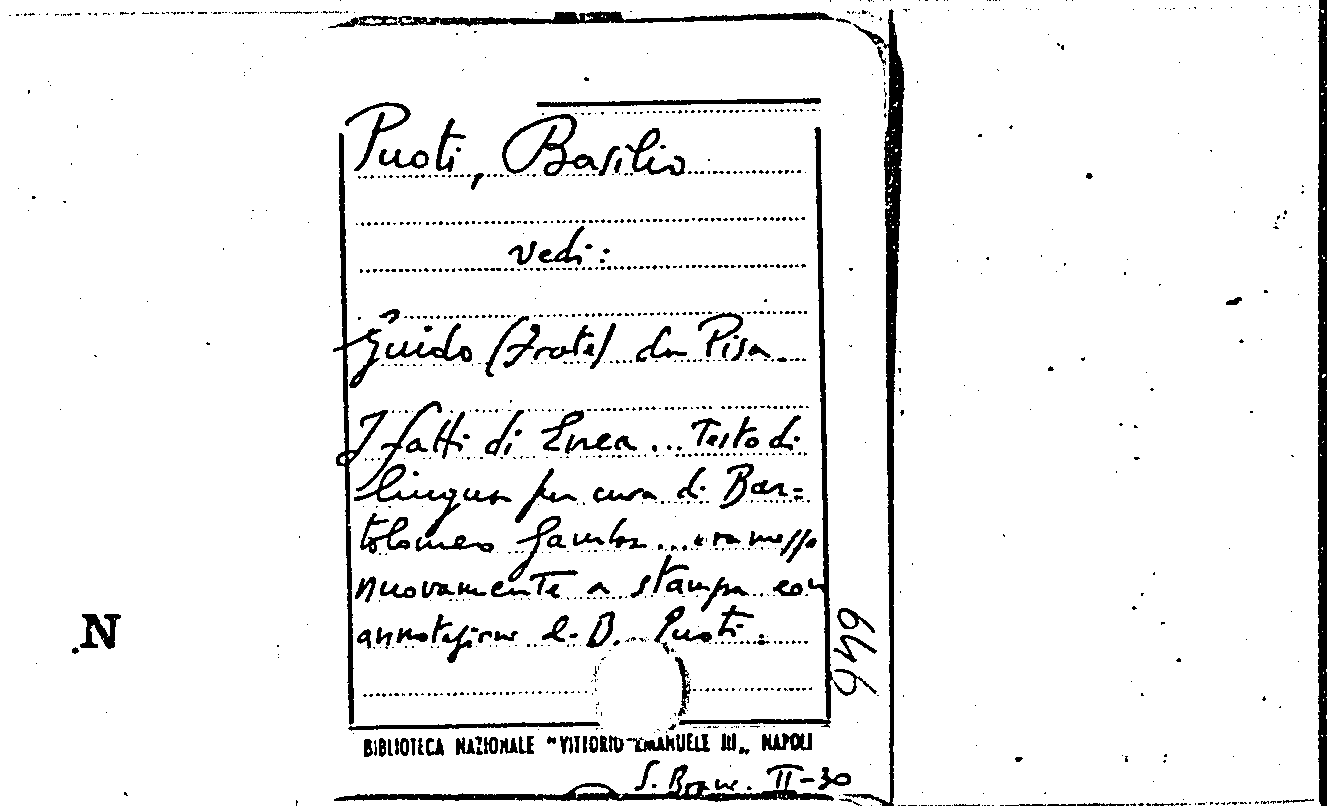 Puoti, Basilio
vedi:
Guido (Frate) da Pisa
I fatti di Enea ... Testo di
lingua per cura di Bar=
tolomeo Gamba ... ora messo
nuovamente a stampa con
annotazione di B. Puoti.
649
.N
BIBLIOTECA NAZIONALE "VITTORIO EMANUELE III„ NAPOLI
S. Branc. II-30